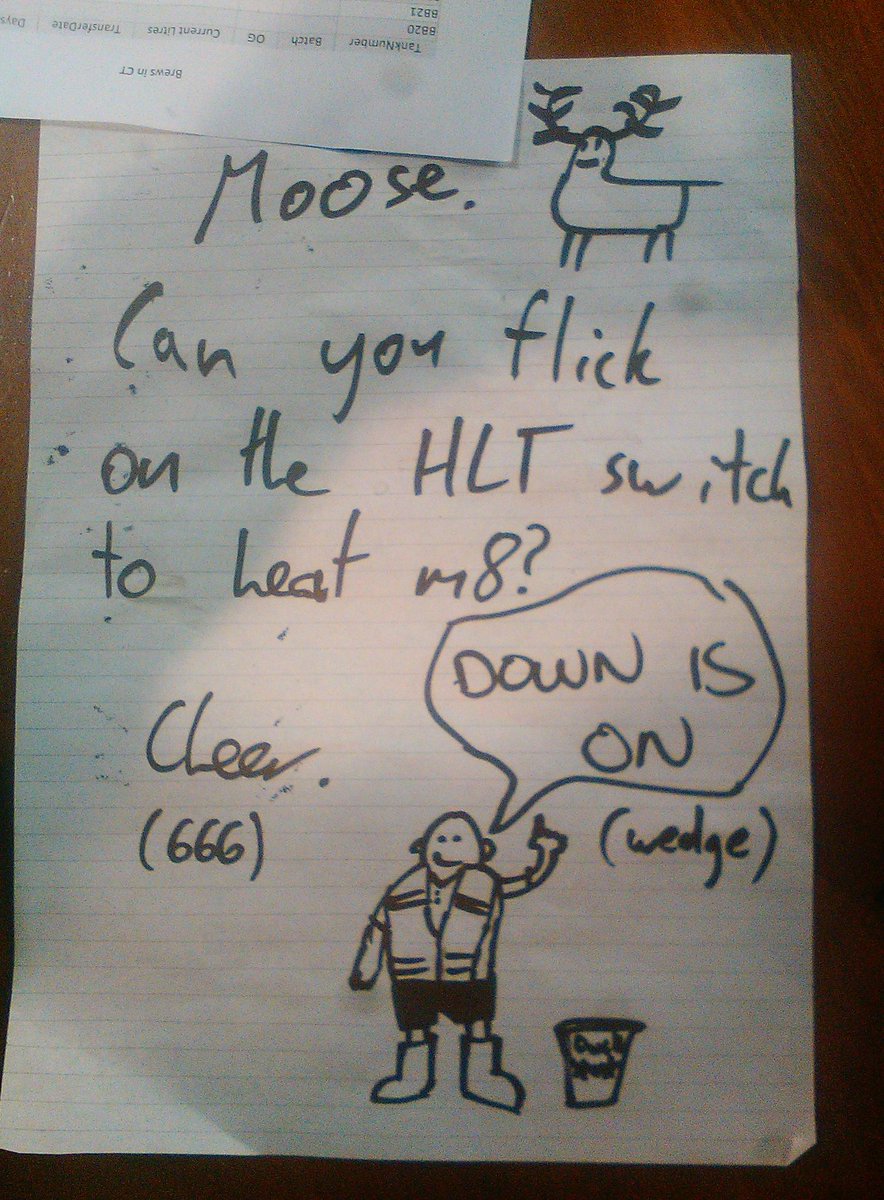 Brews in CT
TankNumber Batch OG Current Litres TransferDate Days
BB20
BB21
Moose.
Can you flick
on the HLT switch
to heat m8?
DOWN IS
ON
Cheers.
(666)
(wedge)